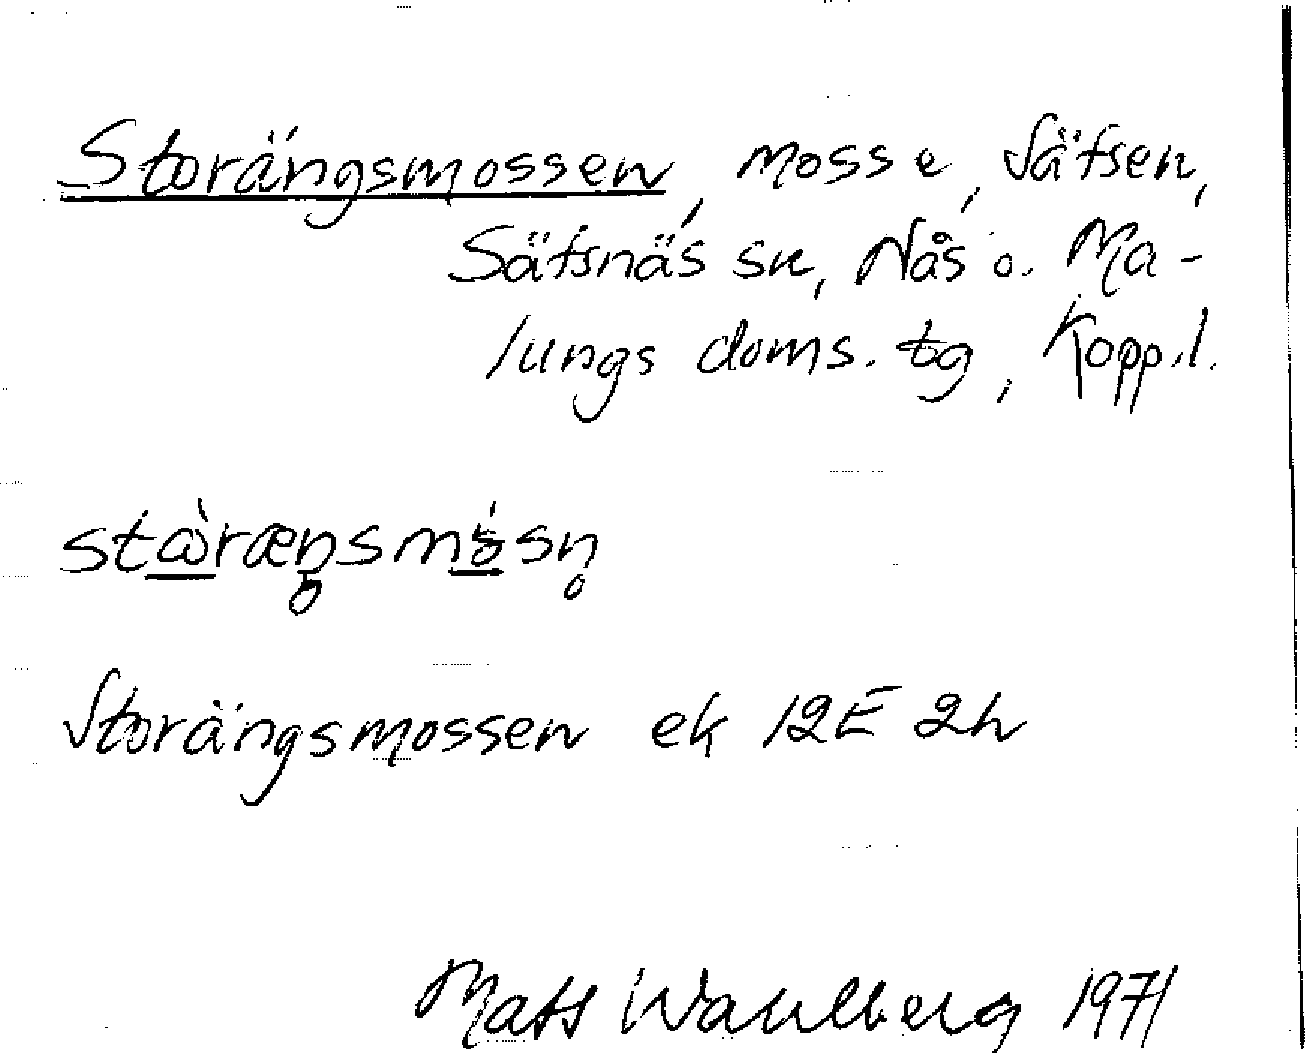 Storängsmossen, mosse, Sätsen,
Sätsnäs sn, Nås o. Ma-
lungs doms. tg, Kopp.l.
Storängsmossen ek 12E 2h
Mats Wahlberg 1971